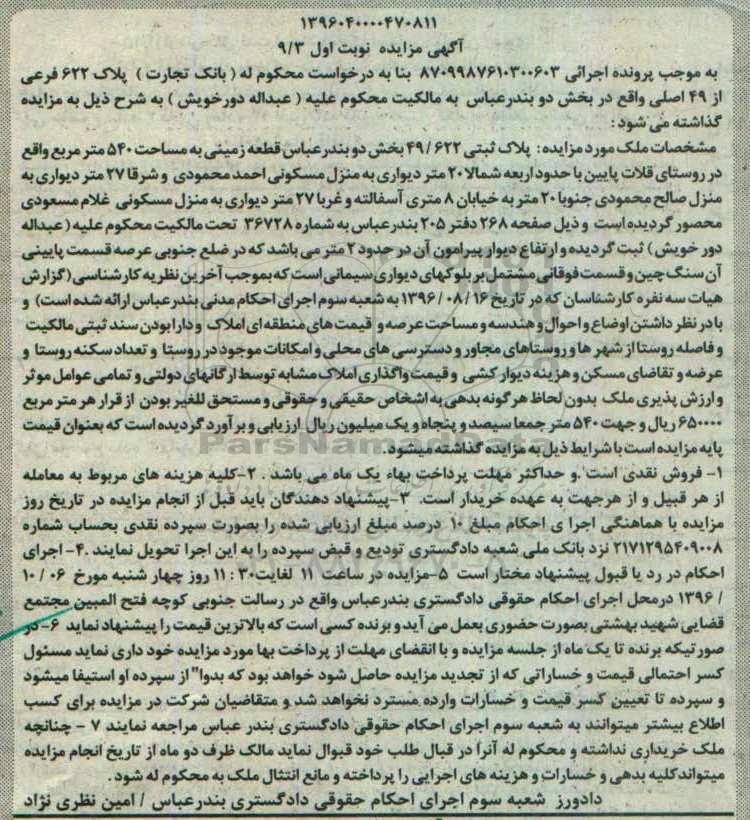 ۱۳۹۶۰۴۰۰۰۰۴۷۰۸۱۱
آگهی مزایده نوبت اول ۹/۳
به موجب پرونده اجرائی ۸۷۰۹۹۸۷۶۱۰۳۰۰۶۰۳ بنا به درخواست محکوم له ( بانک تجارت ) پلاک ۶۲۲ فرعی
از ۴۹ اصلی واقع در بخش دو بندرعباس به مالکیت محکوم علیه ( عبداله دورخویش ) به شرح ذیل به مزایده
گذاشته می شود :
مشخصات ملک مورد مزایده: پلاک ثبتی ۴۹/۶۲۲ بخش دو بندرعباس قطعه زمینی به مساحت ۵۴۰ متر مربع واقع
در روستای قلات پایین با حدود اربعه شمالا ۲۰ متر دیواری به منزل مسکونی احمد محمودی و شرقا ۲۷ متر دیواری به
منزل صالح محمودی جنوبا ۲۰ متر به خیابان ۸ متری آسفالته و غربا ۲۷ متر دیواری به منزل مسکونی غلام مسعودی
محصور گردیده است و ذیل صفحه ۲۶۸ دفتر ۲۰۵ بندرعباس به شماره ۳۶۷۲۸ تحت مالکیت محکوم علیه ( عبداله
دور خویش ) ثبت گردیده و ارتفاع دیوار پیرامون آن در حدود ۲ متر می باشد که در ضلع جنوبی عرصه قسمت پایینی
آن سنگ چین و قسمت فوقانی مشتمل بر بلوکهای دیواری سیمانی است که بموجب آخرین نظریه کارشناسی ( گزارش
هیات سه نفره کارشناسان که در تاریخ ۱۳۹۶/۰۸/۱۶ به شعبه سوم اجرای احکام مدنی بندرعباس ارائه شده است) و
با در نظر داشتن اوضاع و احوال و هندسه و مساحت عرصه و قیمت های منطقه ای املاک و دارا بودن سند ثبتی مالکیت
و فاصله روستا از شهر ها و روستاهای مجاور و دسترسی های محلی و امکانات موجود در روستا و تعداد سکنه روستا و
عرضه و تقاضای مسکن و هزینه دیوار کشی و قیمت واگذاری املاک مشابه توسط ارگانهای دولتی و تمامی عوامل موثر
و ارزش پذیری ملک بدون لحاظ هرگونه بدهی به اشخاص حقیقی و حقوقی و مستحق للغیر بودن از قرار هر متر مربع
۶۵۰۰۰۰ ریال و جهت ۵۴۰ متر جمعا سیصد و پنجاه و یک میلیون ریال ارزیابی و برآورد گردیده است که بعنوان قیمت
پایه مزایده است با شرایط ذیل به مزایده گذاشته میشود.
۱- فروش نقدی است و حداکثر مهلت پرداخت بهاء یک ماه می باشد . ۲-کلیه هزینه های مربوط به معامله
از هر قبیل و از هرجهت به عهده خریدار است. ۳-پیشنهاد دهندگان باید قبل از انجام مزایده در تاریخ روز
مزایده با هماهنگی اجرا ی احکام مبلغ ۱۰ درصد مبلغ ارزیابی شده را بصورت سپرده نقدی بحساب شماره
۲۱۷۱۲۹۵۴۰۹۰۰۸ نزد بانک ملی شعبه دادگستری تودیع و قبض سپرده را به این اجرا تحویل نمایند .۴- اجرای
احکام در رد یا قبول پیشنهاد مختار است ۵-مزایده در ساعت ۱۱ لغایت ۱۱:۳۰ روز چهار شنبه مورخ ۱۰/۰۶
/ ۱۳۹۶ درمحل اجرای احکام حقوقی دادگستری بندرعباس واقع در رسالت جنوبی کوچه فتح المبین مجتمع
قضایی شهید بهشتی بصورت حضوری بعمل می آید و برنده کسی است که بالاترین قیمت را پیشنهاد نماید ۶-در
صورتیکه برنده تا یک ماه از جلسه مزایده و با انقضای مهلت از پرداخت بها مورد مزایده خود داری نماید مسئول
کسر احتمالی قیمت و خساراتی که از تجدید مزایده حاصل شود خواهد بود که بدوا" از سپرده او استیفا میشود
و سپرده تا تعیین کسر قیمت و خسارات وارده مسترد نخواهد شد و متقاضیان شرکت در مزایده برای کسب
اطلاع بیشتر میتوانند به شعبه سوم اجرای احکام حقوقی دادگستری بندر عباس مراجعه نمایند ۷ - چنانچه
ملک خریداری نداشته و محکوم له آنرا در قبال طلب خود قبوال نماید مالک ظرف دو ماه از تاریخ انجام مزایده
میتواند کلیه بدهی و خسارات و هزینه های اجرایی را پرداخته و مانع انتقال ملک به محکوم له شود .
دادورز شعبه سوم اجرای احکام حقوقی دادگستری بندرعباس / امین نظری نژاد
ParsNamadData